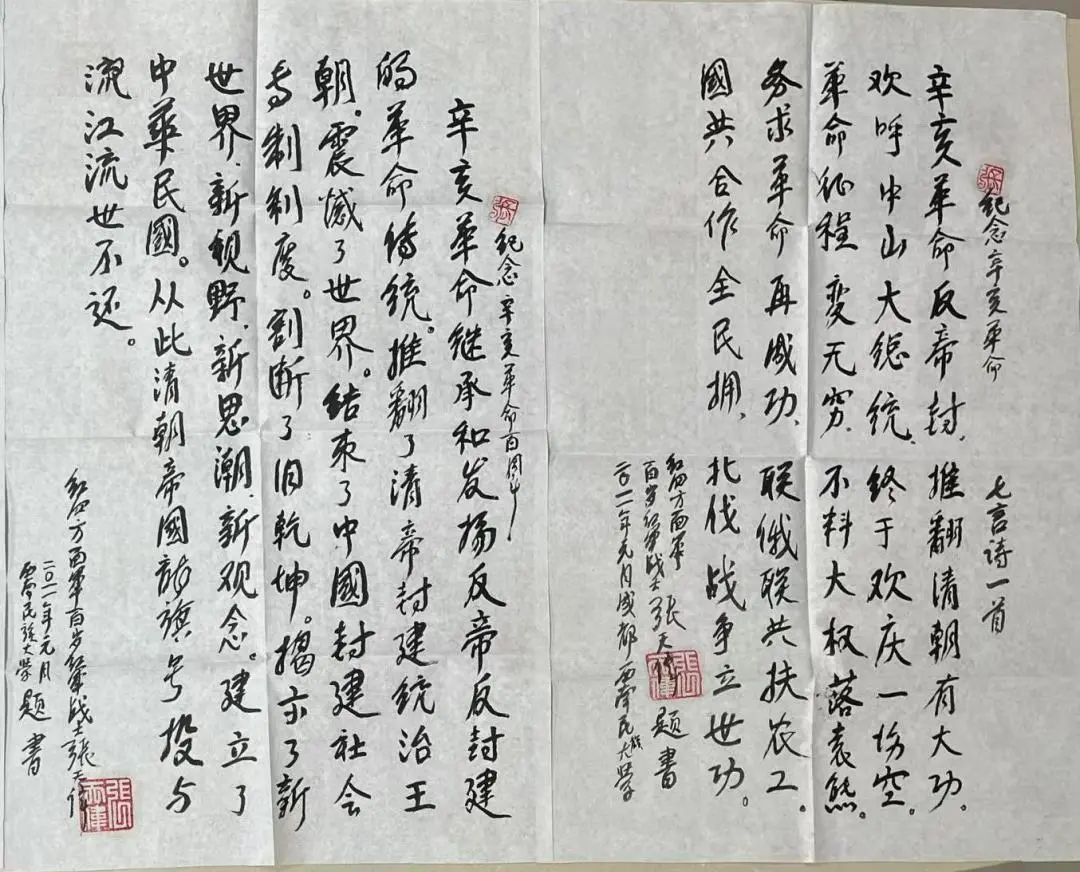 张
纪念辛亥革命 七言诗一首
辛亥革命反帝封、推翻清朝有大功。
欢呼中山大总统、终于欢庆一场空。
革命征程变无穷、不料大权落袁熊。
务求革命再成功、联俄联共扶农工。
國共合作全民拥、北伐战争立世功。
红四方面军
百岁红军战士张天伟 题书
二〇一一年元月成都西南民族大学
张
纪念辛亥革命百周年
辛亥革命继承和发扬反帝反封建
的革命传统。推翻了清帝封建统治王
朝。震憾了世界。结束了中國封建社会
专制制度。割断了旧乾坤。揭示了新
世界、新视野、新思潮、新观念。建立了
中華民國。从此清朝帝國龍旗号投与
流江流世不还。
红四方面军百岁红军战士張天伟
二〇一一年元月
西南民族大学 题书